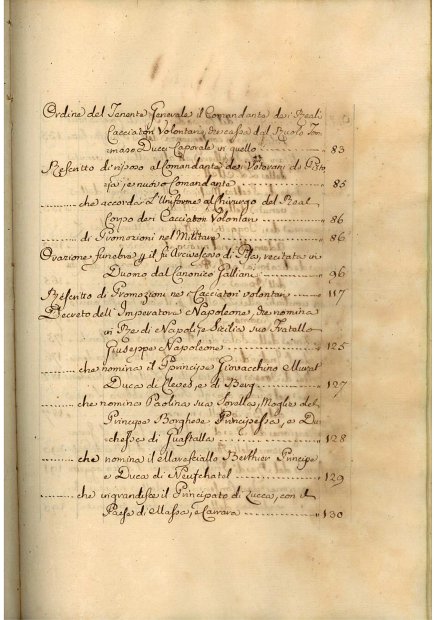 Ordine del Tenente Generale il Comandante de i Reali
Cacciatori Volontari, che cassa dal Ruolo Tom
maso Ducci Caporale in quello 83
Rescritto di riposo al Comandante de Veterani di
e nuovo Comandante 85
che accorda l'Uniforme al Chirurgo del Real
Corpo dei Cacciatori Volontari 86
di Promozioni nel Militare 86
Orazione funebre p il fu Arcivescovo di Pisa, recitata in
Duomo dal Canonico 96
Rescritto di Promozioni ne Cacciatori volontari 117
Decreto dell'Imperatore Napoleone, che nomina
in Re di Napoli, e Sicilia suo Fratello
Giuseppe Napoleone 125
che nomina il Principe Giovacchino Murat
Duca di Cleves, e di Berg 127
che nomina Paolina sua Sorella, Moglie del
Principe Borghese Principessa, e Du
chessa di Guastalla 128
che nomina il Maresciallo Berthier Principe
e Duca di Neufchatel 129
che ingrandisce il Principato di Lucca, con il
Paese di Massa, e Carrara 130